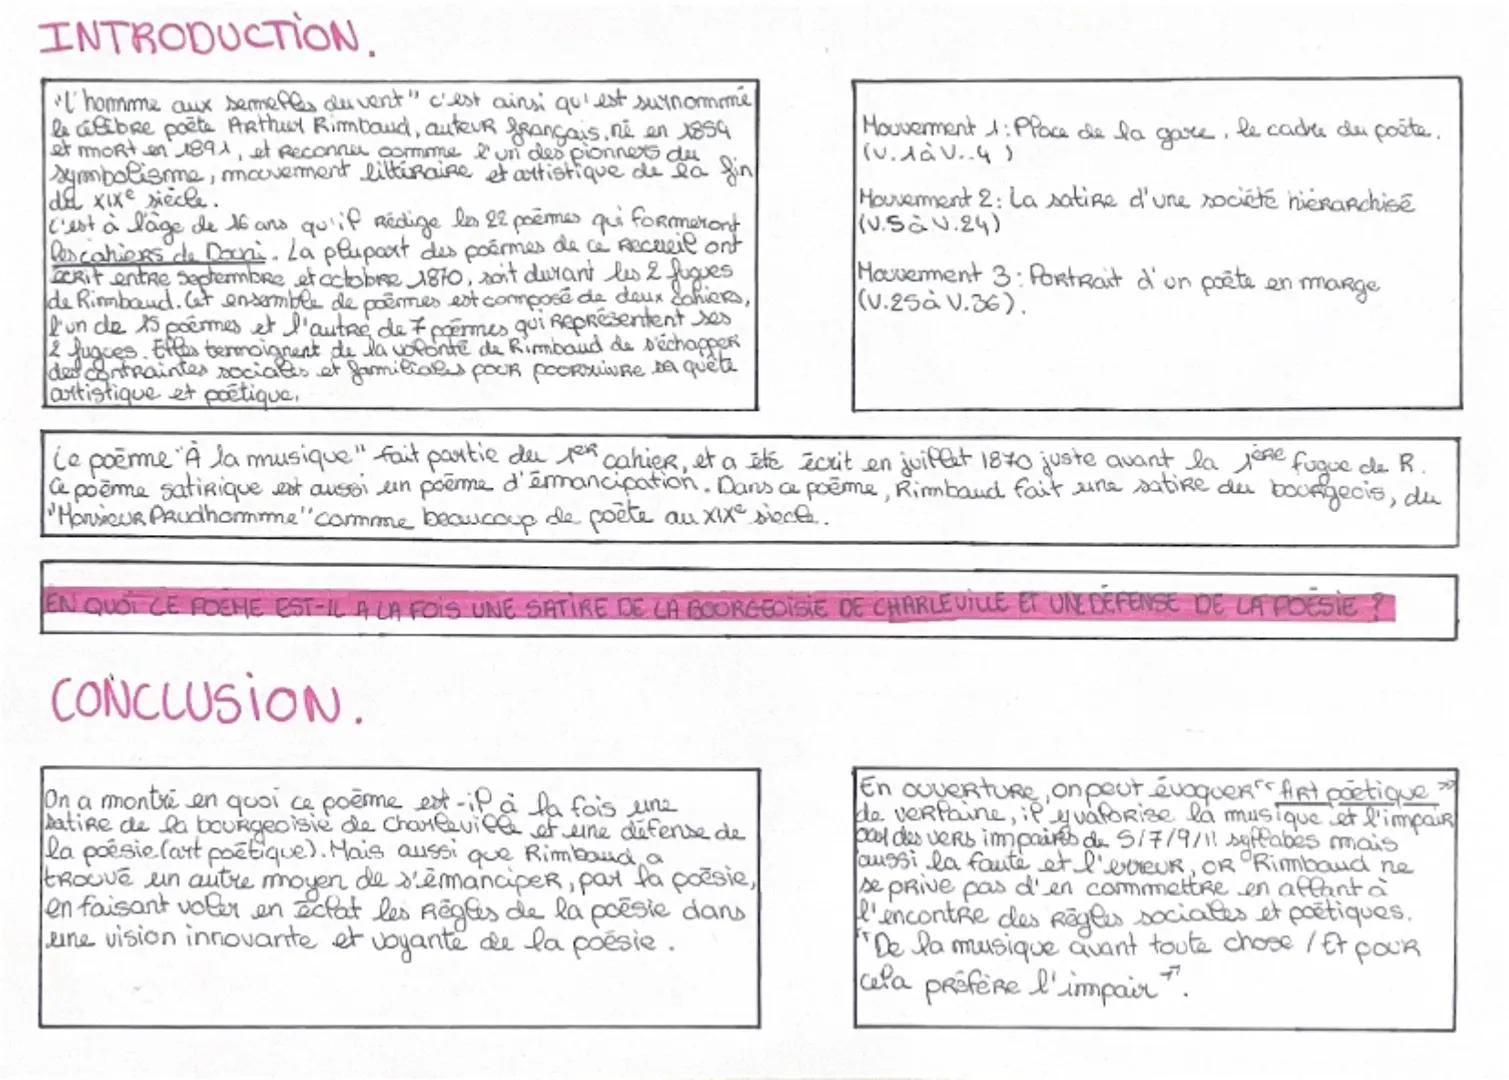 INTRODUCTION.
"l'homme aux semelles du vent" c'est ainsi qu'est surnommé
le célèbre poète Arthur Rimbaud, auteur français, né en 1854
et mort en 1891, et reconnu comme l'un des pionners du
symbolisme, mouvement littéraire et artistique de la fin
du XIXe siècle.
C'est à l'âge de 16 ans qu'il rédige les 22 poèmes qui formeront
les cahiers de Douai. La plupart des poèmes de ce recueil ont
écrit entre septembre et octobre 1870, soit durant les 2 fugues
de Rimbaud. Cet ensemble de poèmes est composé de deux cahiers,
l'un de 15 poèmes et l'autre de 7 poèmes qui représentent ses
2 fugues. Elles temoignent de la volonté de Rimbaud de s'échapper
des contraintes sociales et familiales pour poursuivre sa quête
artistique et poétique.
Mouvement 1: Place de la gare, le cadre du poète.
(V.1 à V..4)
Mouvement 2: La satire d'une société hiérarchisé
(V.5 à V.24)
Mouvement 3: Portrait d'un poète en marge
(V.25 à V.36).
Le poème "À la musique" fait partie du 1er cahier, et a été écrit en juillet 1870 juste avant la 1ère fugue de R.
Ce poème satirique est aussi un poème d'émancipation. Dans ce poème, Rimbaud fait une satire du bourgeois, du
"Monsieur Prudhomme" comme beaucoup de poète au XIXe siècle.
EN QUOI CE POEME EST-IL A LA FOIS UNE SATIRE DE LA BOURGEOISIE DE CHARLEVILLE ET UNE DÉFENSE DE LA POÉSIE ?
CONCLUSION.
On a montré en quoi ce poème est-il à la fois une
satire de la bourgeoisie de Charleville et une défense de
la poésie (art poétique). Mais aussi que Rimbaud a
trouvé un autre moyen de s'émanciper, par la poésie,
en faisant voler en éclat les règles de la poésie dans
une vision innovante et voyante de la poésie.
En ouverture, on peut évoquer "Art poétique"
de verlaine, il y valorise la musique et l'impair
par des vers impairs de 5/7/9/11 syllabes mais
aussi la faute et l'erreur, or Rimbaud ne
se prive pas d'en commettre en allant à
l'encontre des règles sociales et poétiques.
"De la musique avant toute chose / Et pour
cela préfère l'impair".